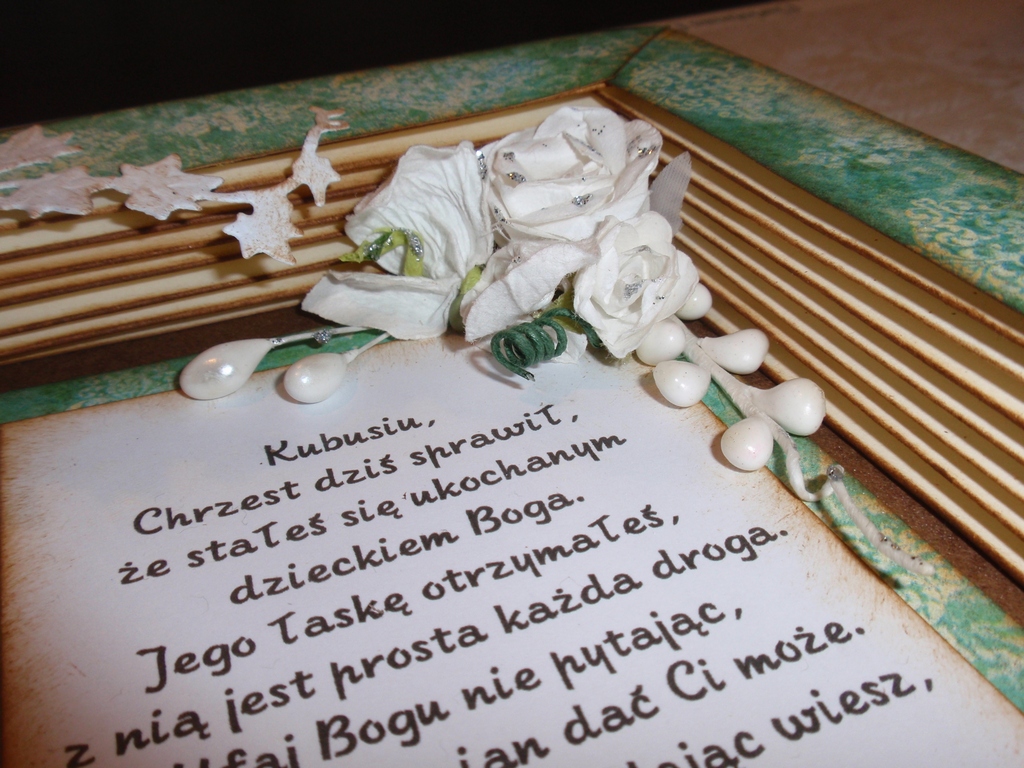 Kubusiu,
Chrzest dziś sprawił,
że stałeś się ukochanym
dzieckiem Boga.
Jego łaskę otrzymałeś,
z nią jest prosta każda droga.
Ufaj Bogu nie pytając,
dać Ci może.
wiesz,